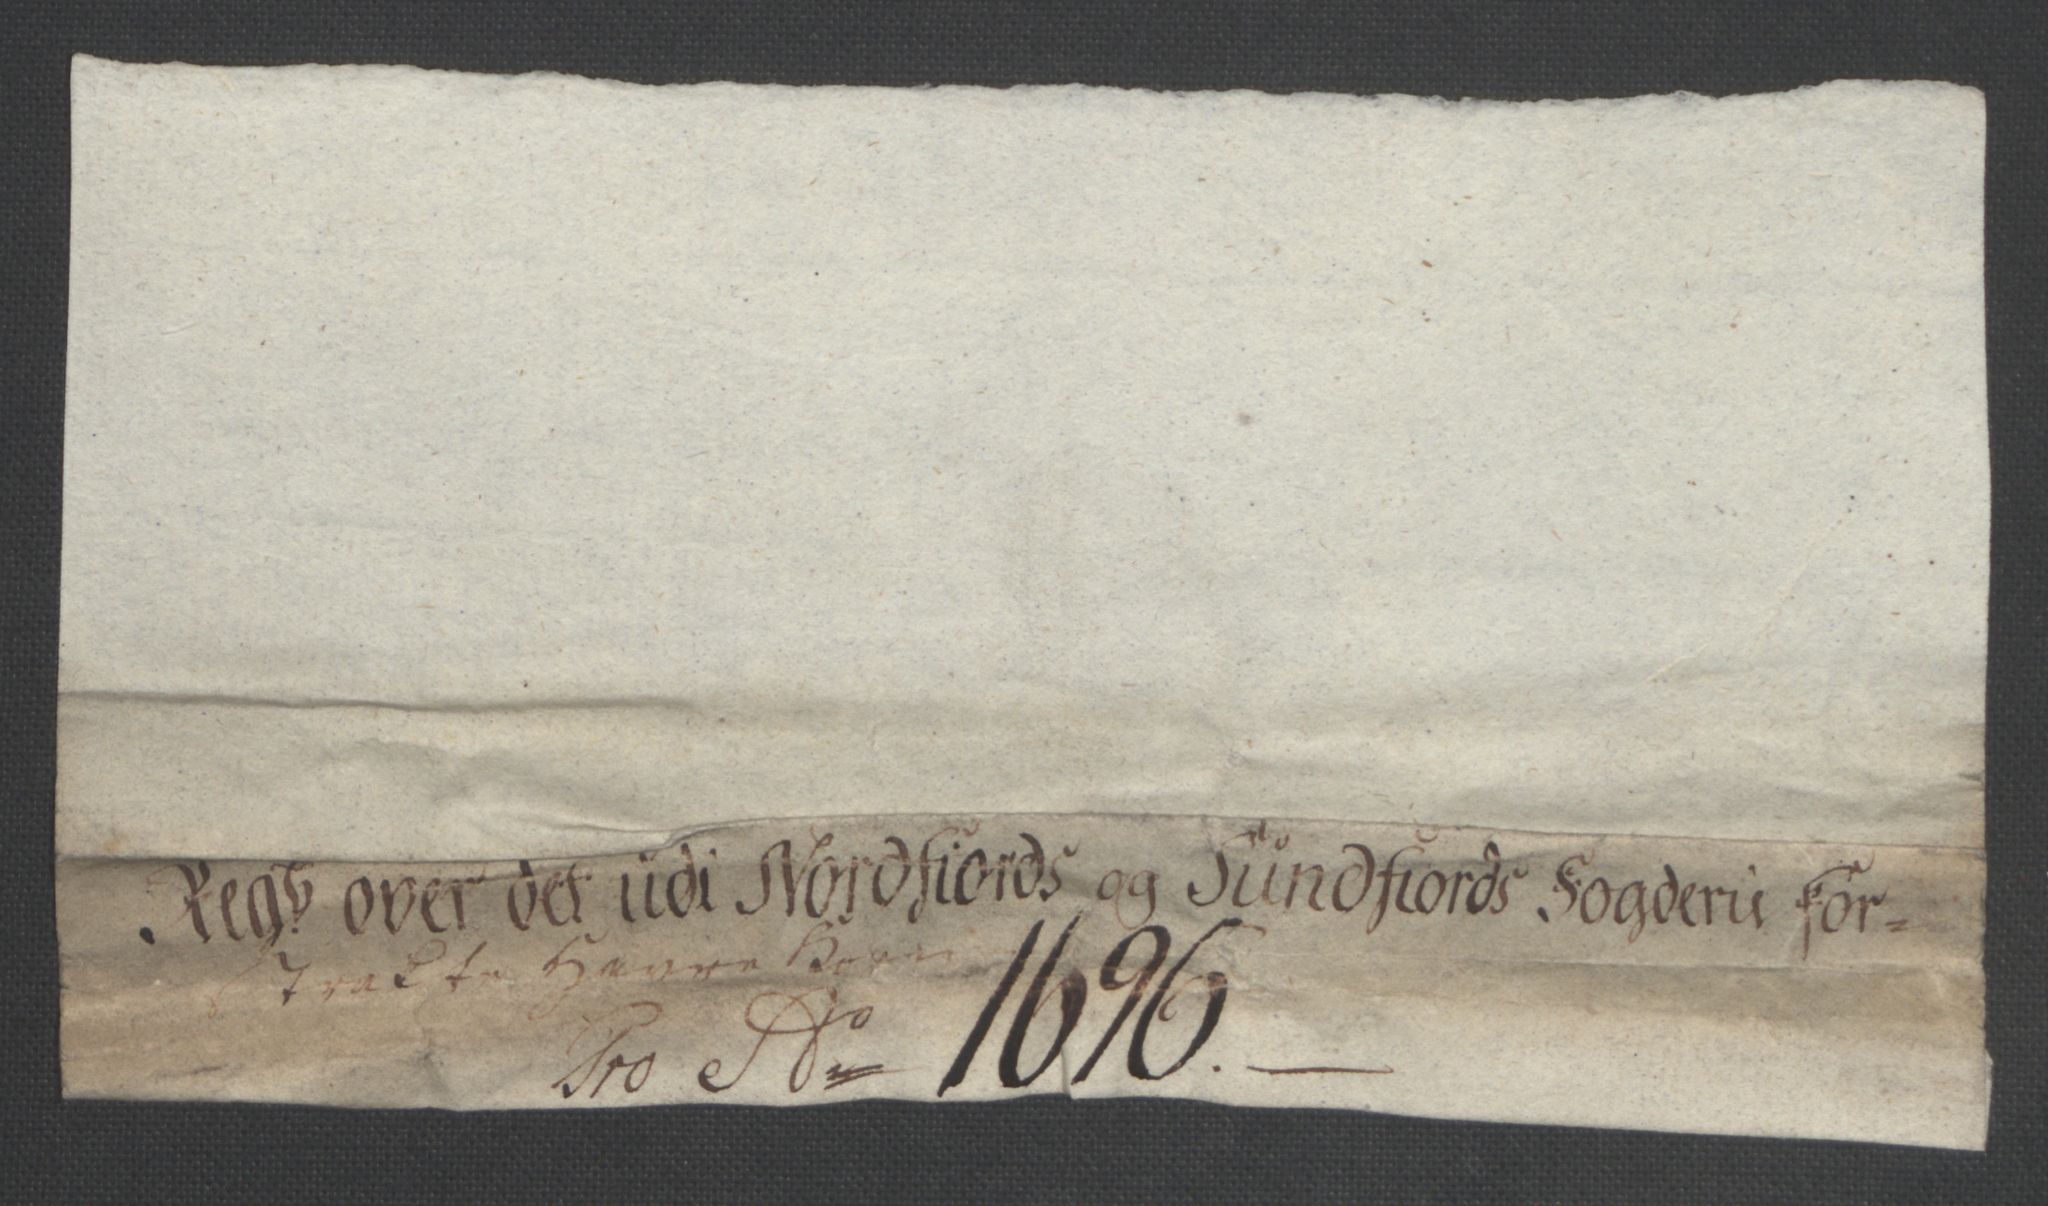 Regr over det udi Nordfiords og Sundfiords Fogderii for=
strakte Havre Korn
Pro Ao 1696.